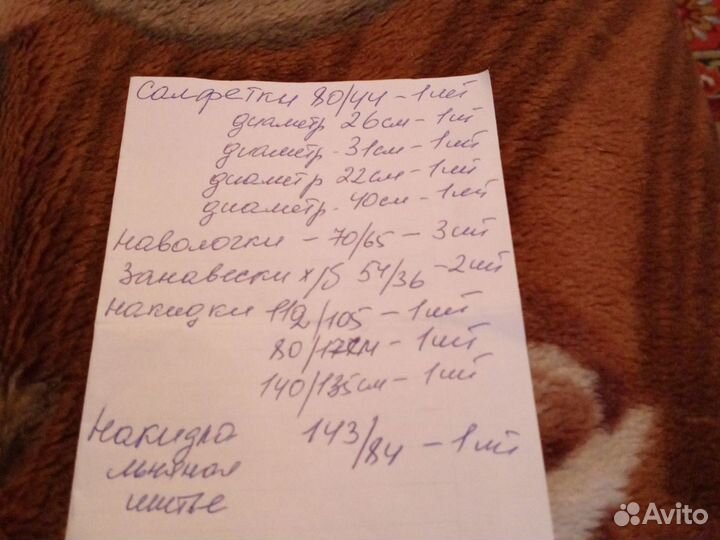 Салфетки 80/44 - 1 шт
диаметр 26см - 1шт
диаметр. 31см - 1шт
диаметр 22см - 1шт
диаметр. 40см - 1шт
наволочки - 70/65 - 3 шт
Занавески х/б 54/36 - 2 шт
накидки 112/105 - 1 шт
80/ - 1 шт
140/135см - 1 шт
Накидка 143/84 - 1 шт
льняная
шитье
Avito